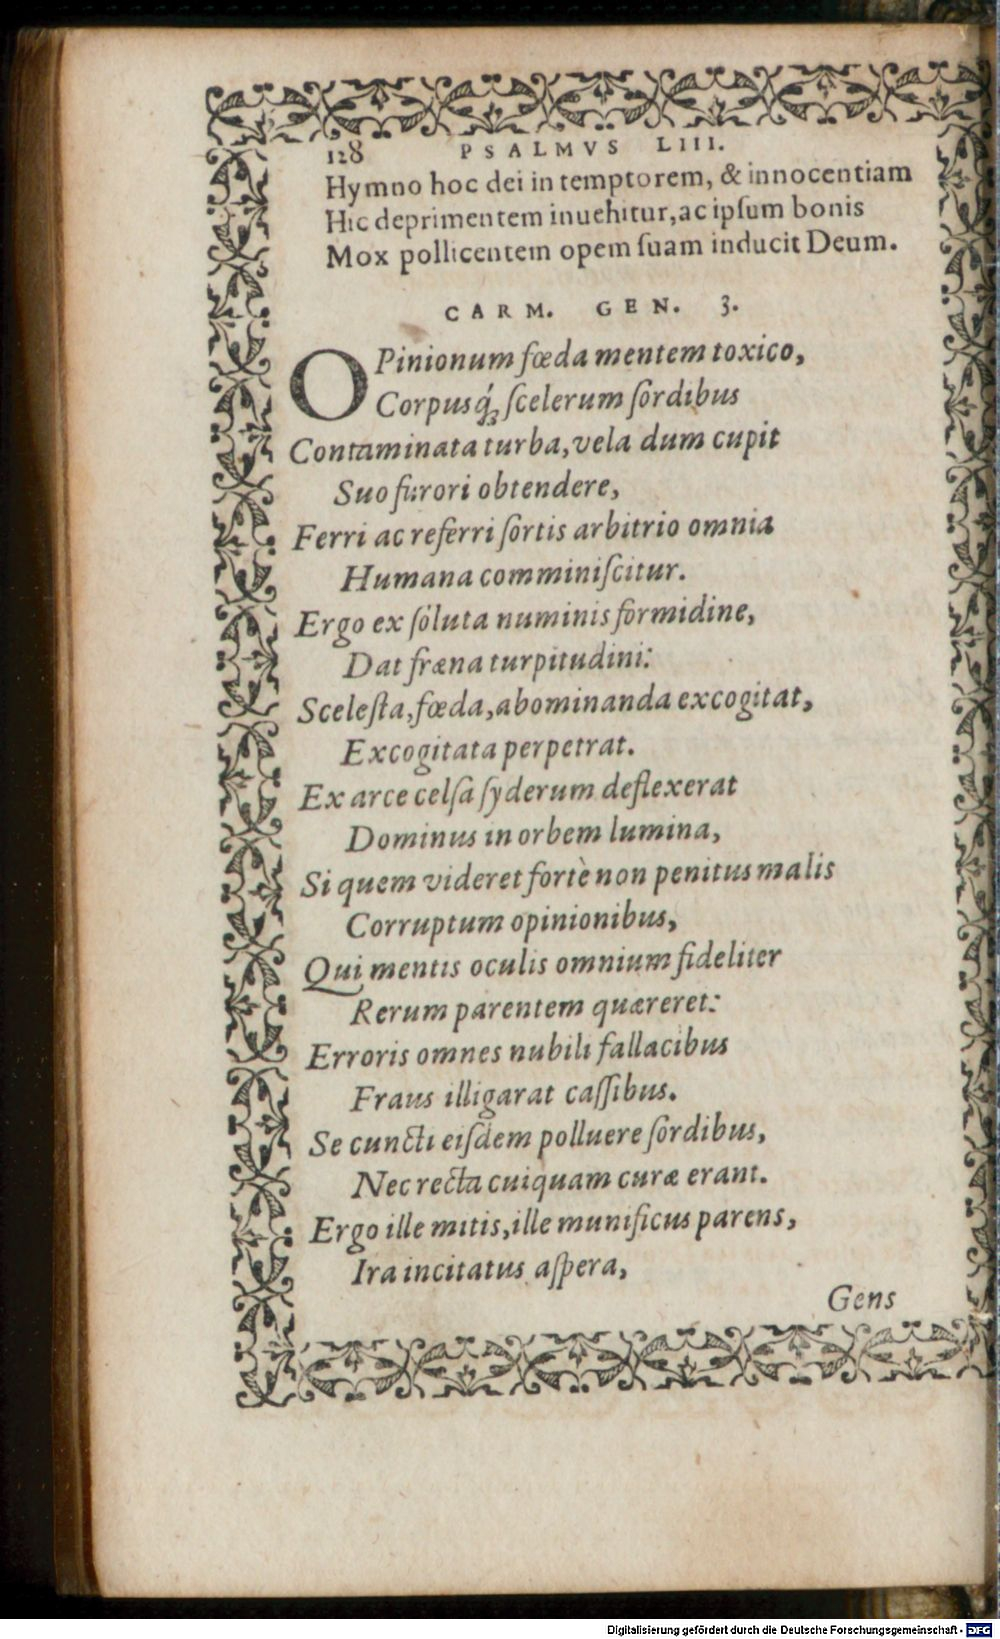 128 PSALMVS LIII.
Hymno hoc dei in temptorem, & innocentiam
Hic deprimentem inuehitur, ac ipſum bonis
Mox pollicentem opem ſuam inducit Deum.
CARM. GEN. 3.
OPinionum fœda mentem toxico,
Corpusq́ꝫ ſcelerum ſordibus
Contaminata turba, vela dum cupit
Suo furori obtendere,
Ferri ac referri ſortis arbitrio omnia
Humana comminiſcitur.
Ergo ex ſoluta numinis formidine,
Dat fræna turpitudini:
Sceleſta, fœda, abominanda excogitat,
Excogitata perpetrat.
Ex arce celſa ſyderum deflexerat
Dominus in orbem lumina,
Si quem videret fortè non penitus malis
Corruptum opinionibus,
Qui mentis oculis omnium fideliter
Rerum parentem quæreret:
Erroris omnes nubili fallacibus
Fraus illigarat caſſibus.
Se cuncti eiſdem polluere ſordibus,
Nec recta cuiquam curæ erant.
Ergo ille mitis, ille munificus parens,
Ira incitatus aſpera,
Gens
Digitalisierung gefördert durch die Deutsche Forschungsgemeinschaft - DFG